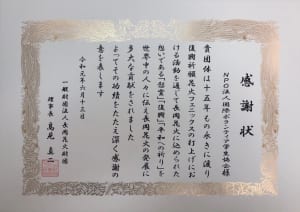 感謝状
NPO法人国際ボランティア学生協会様
貴団体は十五年もの永きに渡り
復興祈願花火フェニックスの打上げにお
ける活動を通して長岡花火に込められた
想いである「慰霊」「復興」「平和への祈り」を
世界中の人々に伝え長岡花火の発展に
多大な貢献をされました
よってその功績をたたえ深く感謝の
意を表します
令和元年六月十三日
一般財団法人長岡花火財団
理事長 高見真二